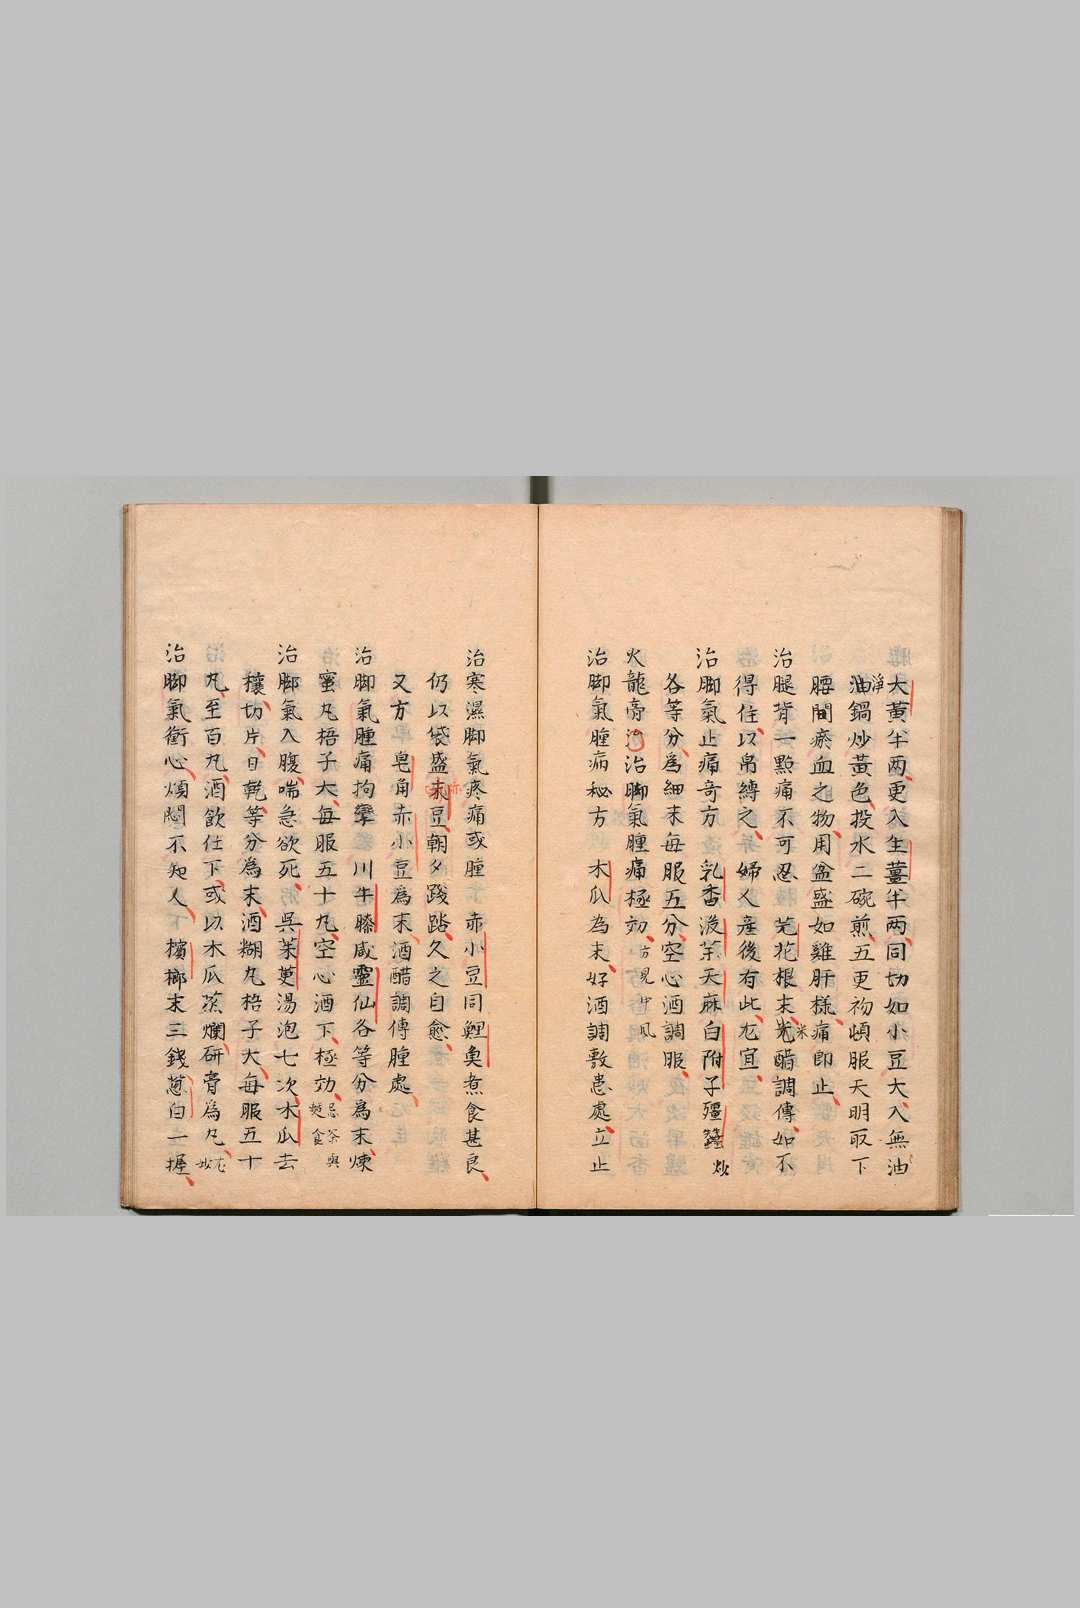 大黃半两更入生薑半两同切如小豆大入無油
淨
油鍋炒黃色投水二碗煎五更初頓服天明取下
腰間瘀血之物用盆盛如雞肝樣痛即止
治腿背一㸃痛不可忍 芫花根末米醋調傅如不
米
得住以帛縛之婦人產後有此尤宜
治脚氣止痛奇方 乳香沒藥天麻白附子殭蠶炒
各等分為細末每服五分空心酒調服
火龍膏 治脚氣腫痛極効方見中風
治脚氣腫病秘方 木瓜為末好酒調敷患處立止
治寒濕脚氣疼痛或腫 赤小豆同鯉魚煮食甚良
仍以袋盛赤豆朝夕踐踏久之自愈
赤
又方 皂角赤小豆為末酒醋調傅腫處
治脚氣腫痛拘攣 川牛膝威靈仙各等分為末煉
蜜丸梧子大每服五十丸空心酒下極効忌茶與麵食
治脚氣入腹喘急欲死 吳茱萸湯泡七次木瓜去
穰切片日乾等分為末酒糊丸梧子大每服五十
丸至百丸酒飲任下或以木瓜蒸爛研膏為丸尤妙
治脚氣衝心煩悶不知人 檳榔末三錢葱白一握